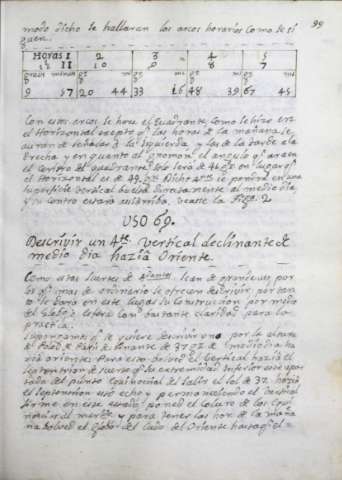 99
modo dicho se hallaran los arcos horarios como se si
guen.
Horas I 2 3 4 5
12 11 10 9 8 7
9 57 20 44 33 16 48 39 67 45
Con estos arcos se hace el quadrante, como se hizo en
el Horizontal excepto q. las horas de la mañana se
auran de señalar a la izquierda y las de la tarde a la
derecha y en quanto al gnomon el angulo q. ara en
el centro del quadrante sera de en lugar q.
el Horizontal es de Dicho se pondrá en una
superficie vertical buelta directamente al medio dia
y su centro estara arriba, vease la Figa. 2
USO 69.
Descrivir un 4te. vertical declinante de
medio dia hazia Oriente.
Como estas suertes de sean de gran uso, por
los q. mas de ordinario se ofrecen descrivir, por tan
to le dara en este lugar su construccion por medio
del globo, o esfera con bastante claridad para la
practica.
Supongamos q. se quiere descrivir uno por la altura
de Polo de Paris declinante de 37.92 de medio dia ha
zia oriente. Para esto bolved el vertical hazia el
septentrion de suerte q. su extremidad inferior este apar
tada del punto equinoccial del taller el tal de 32 hazia
el septentrion esto echo y permaneciendo el vertical
firme en este estado poned el coluro de los equi
noccios al meridno. y para tener las hor. de la maña
na bolved el globo del lado del Oriente hasta q. el